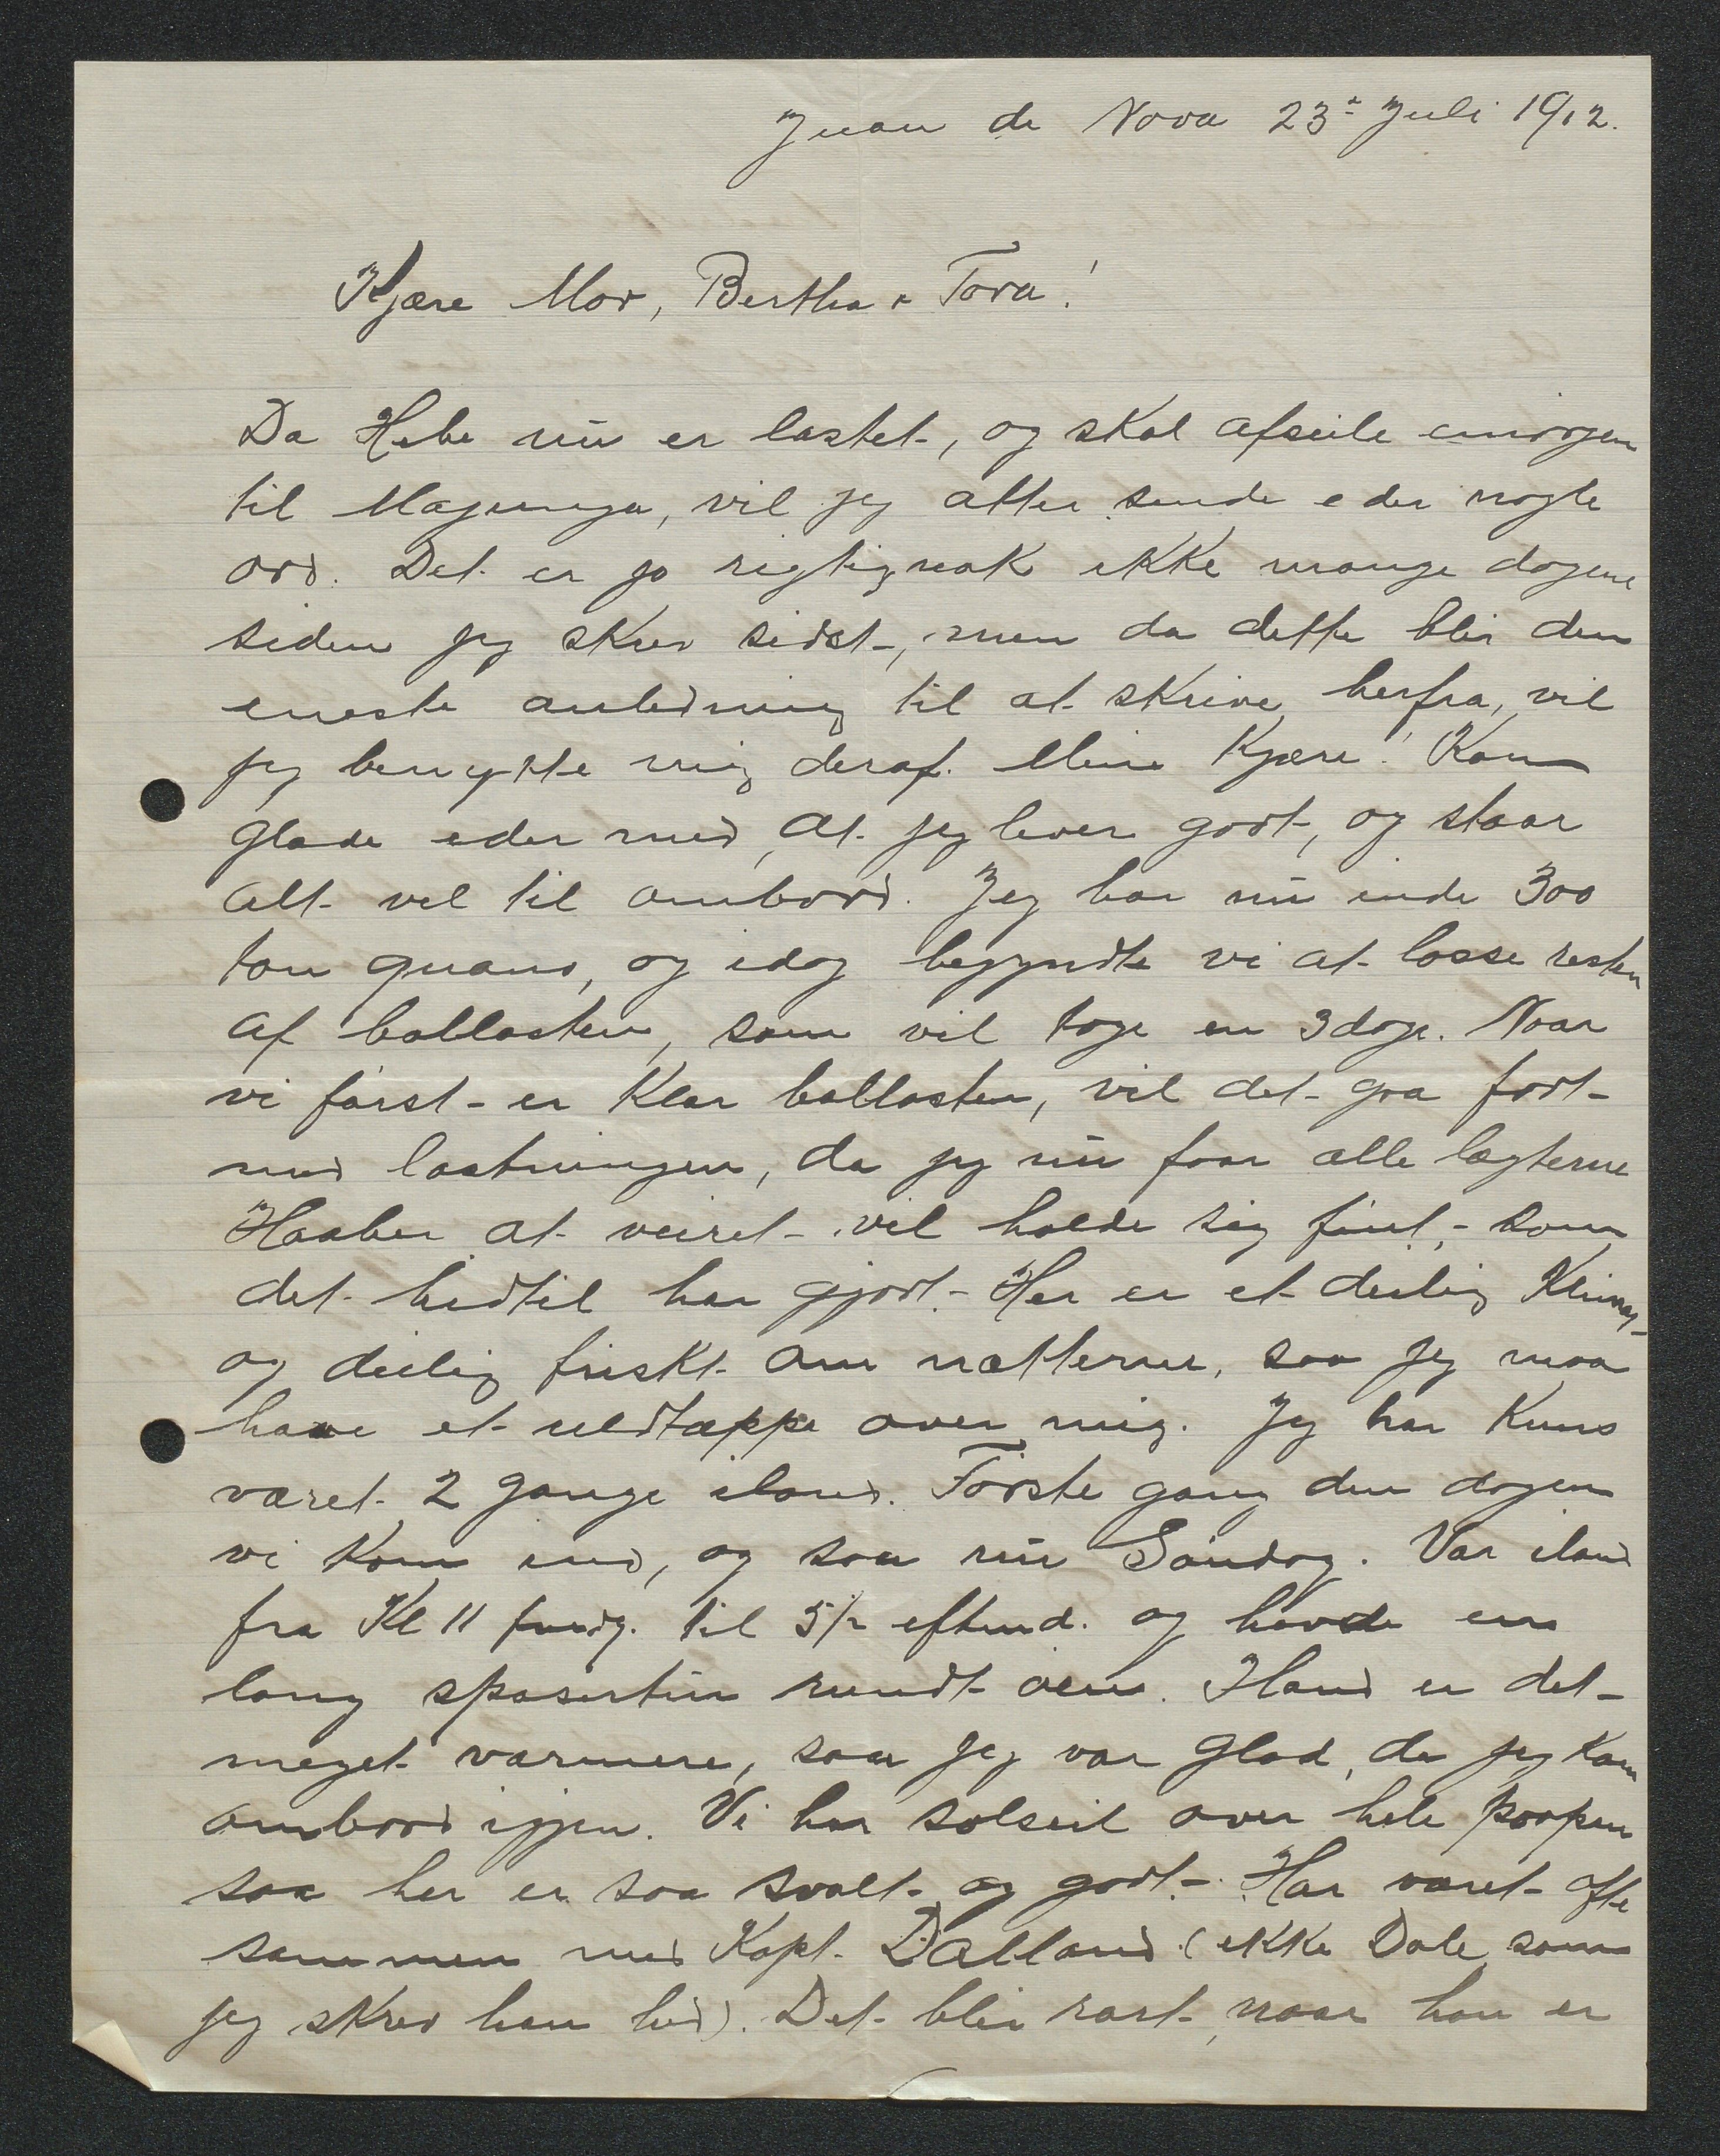 Juan de Nova 23' Juli 1912.
Kjære Mor, Bertha & Tora!
Da Hebe nu er lastet, og skal afseile imorgen
til Majunga, vil jeg atter sende eder nogle
ord. Det er jo rigtignok ikke mange dagene
siden jeg skrev sidst, men da dette blir den
eneste anledning til at skrive herfra, vil
jeg benytte mig deraf. Mine Kjære! Kan
glæde eder med, at jeg lever godt, og staar
alt vel til ombord. Jeg har nu inde 300
ton guano, og idag begyndte vi at losse resten
af ballasten, som vil tage en 3 dage. Naar
vi først er klar ballasten, vil det gaa fort
med lastningen, da jeg nu faar alle lægterne
Haaber at veiret vil holde sig fint, som
det hidtil har gjort. Her er et deilig Klima,
og deilig friskt om nætterne, saa jeg maa
have et uldtæppe over mig. Jeg har kuns
været 2 gange iland. Første gang den dagen
vi kom ind, og saa nu Søndag. Var iland
fra Kl 11 fmdg. til 5½ eftmd. og havde en
lang spasertur rundt øen. Iland er det
meget varmere, saa jeg var glad, da jeg kom
ombord igjen. Vi har solseil over hele poopen
saa her er saa svalt og godt. Har været ofte
sammen med Kapt. Dalland (ikke Dale som
jeg skrev han hed). Det blir rart, naar han er